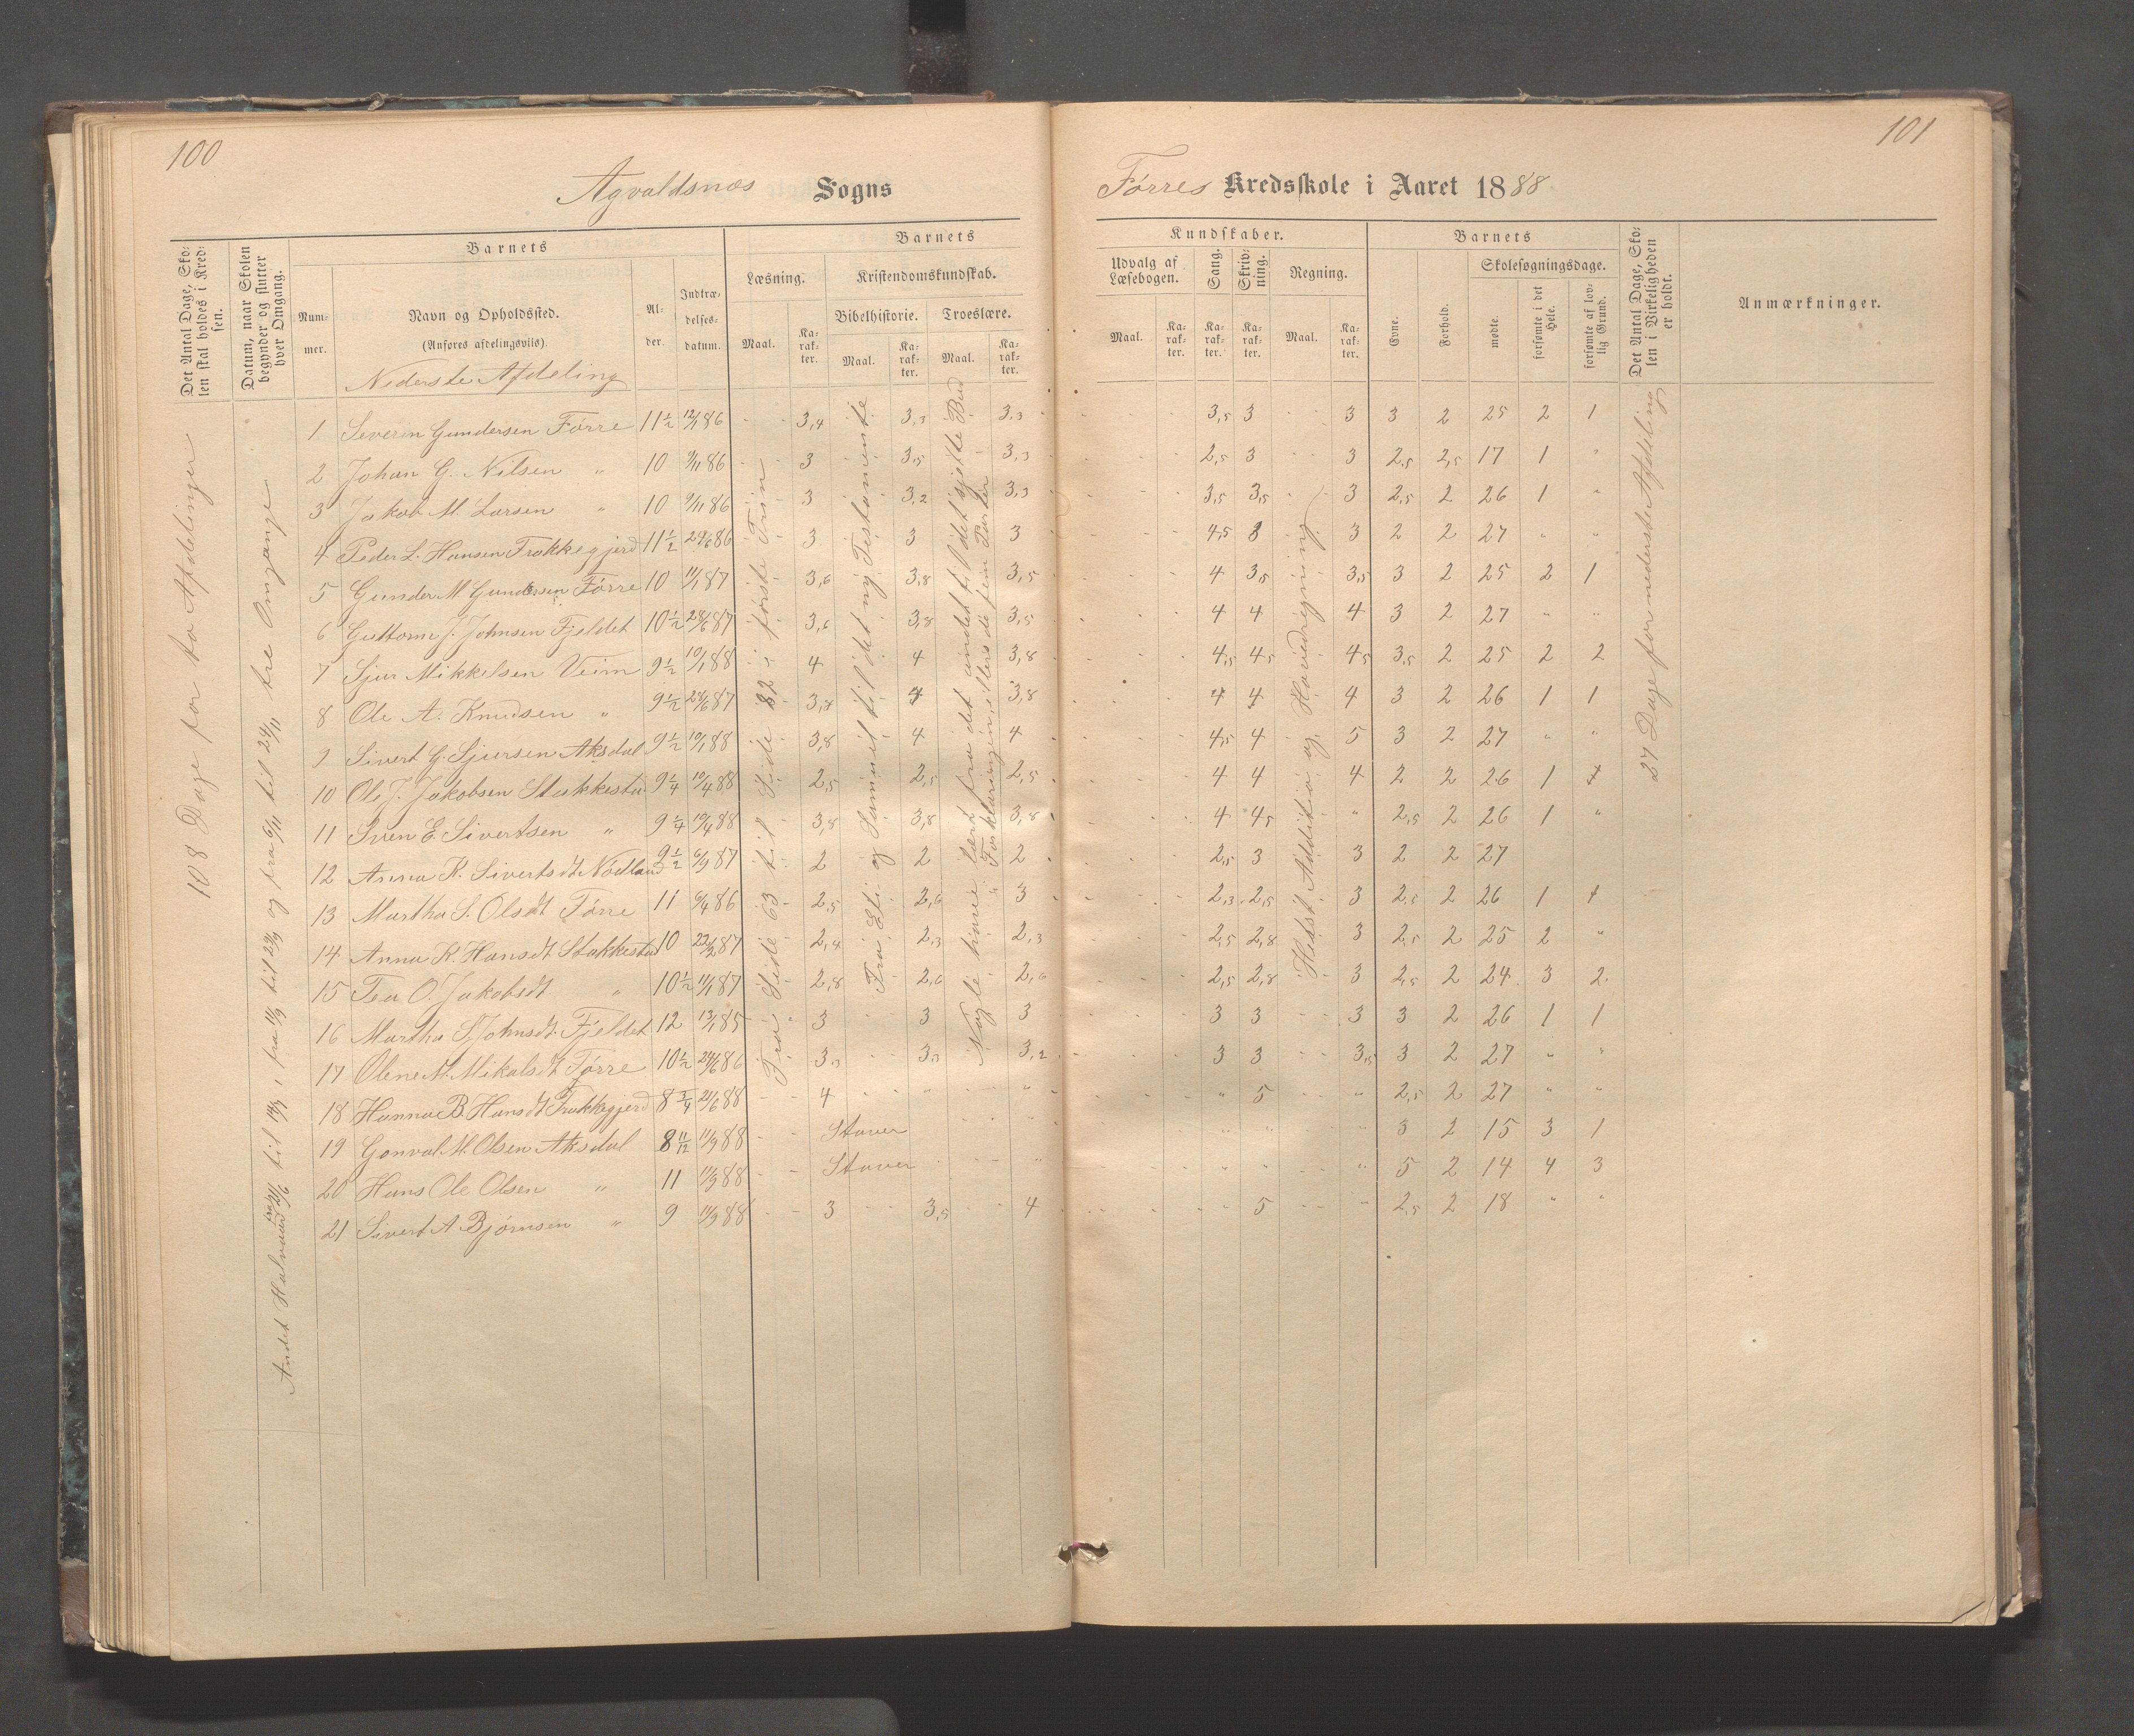 100
Agvaldsnæs Sogns
Det Antal Dage, Sko-
len skal holdes i Kred-
sen.
Datum, naar Skolen
begynder og slutter
hver Omgang.
Barnets
Num-
mer.
Navn og Opholdssted.
(Anføres afdelingsvils).
Nederste Afdeling
Al-
der.
Indtræ-
delses-
datum.
Barnets
Læsning.
Kristendomskundskab.
Bibelhistorie.
Troeslære.
Maal.
Ka-
rak-
ter.
Maal.
Ka-
rak-
ter.
Maal.
Ka-
rak-
ter.
108 Dage for to Afdelinger
Fra Side 63 til Side 82 i første Trin
Fra Eli og Samuel til det ny Testamente
1 Severin Gundersen Førre 11½ 12/1 86 3,4 3,3 3,3
2 Johan G. Nilsen " 10 9/11 86 3 3,5 3,3
3 Jakob M. Larsen " 10 9/11 86 3 3,2 3,3
4 Peder L. Hansen Frakkegjerd 11½ 24/6 86 3 3 3
5 Gunder M Gundersen Førre 10 11/1 87 3,6 3,8 3,5
6 Guttorm J. Johnsen Fjeldet 10½ 28/6 87 3,6 3,8 3,5
7 Sjur Mikkelsen Veim 9½ 10/1 88 4 4 3,8
8 Ole A. Knudsen " 9½ 28/6 87 3,8 4 3,8
9 Sivert G. Sjursen Aksdal 9½ 10/1 88 3,8 4 4
10 Ole J. Jakobsen Stakkesta 9¼ 10/4 88 2,5 2,5 2,5
11 Sven E Sivertsen " 9¼ 10/4 88 3,8 3,8 3,8
12 Anna K. Sivertsdt Nødland 9½ 6/9 87 2 2 2
13 Martha S. Olsdt Førre 11 6/4 86 2,5 2,6 3
14 Anna K. Hansdt Stakkestad 10 22/2 87 2,4 2,3 2,3
15 Tea O. Jakobsdt " 10½ 11/1 87 2,8 2,6 2,6
16 Martha S Johnsdt. Fjeldet 12 13/1 85 3 3 3
17 Olene M. Mikalsdt Førre 10½ 24/6 86 3,3 3,3 3,2
18 Hanna B. Hansdt Frakkegjerd 8¾ 21/6 88 4 " "
19 Gonval M. Olsen Aksdal 8 11/12 11/9 88 Staver
20 Hans Ole Olsen " 11 11/9 88 Staver "
21 Sivert A Bjørnsen " 9 11/9 88 3 3,5 4
101
Førres Kredsskole i Aaret 1888
Kundskaber.
Udvalg af
Læsebogen.
Sang.
Skriv-
ning.
Regning.
Maal.
Ka-
rak-
ter.
Ka-
rak-
ter.
Ka-
rak-
ter.
Maal.
Ka-
rak-
ter.
Barnets
Evne.
Forhold.
Skolesøgningsdage.
mødte.
forsømte i det
Hele.
forsømte af lov-
lig Grund.
Det Antal Dage, Sko-
len i Virkeligheden
er holdt.
Anmærkninger.
Addition og Hovedregning
27 Dage for nederste Afdeling
3,5 3 3 3 2 25 2 1
2,5 3 3 2,5 2,5 17 1 "
3,5 3,5 3 2,5 2 26 1 "
4,5 3 3 2 2 27 " "
4 3,5 3,5 3 2 25 2 1
4 4 4 3 2 27 " "
4,5 4,5 4,5 3,5 2 25 2 2
4 4 4 3 2 26 1 1
4,5 4 5 3 2 27 " "
4 4 4 2 2 26 1 1
4 4,5 " 2,5 2 26 1 "
2,5 3 3 2 2 27
2,3 2,5 3 2,5 2 26 1 1
2,5 2,8 3 2,5 2 25 2 "
2,5 2,8 3 2,5 2 24 3 2
3 3 3 3 2 26 1 1
3 3 3,5 3 2 27 " "
" 5 " 2,5 2 27 " "
" " " 3 2 15 3 1
" " " 5 2 14 4 3
5 2,5 2 18 " "